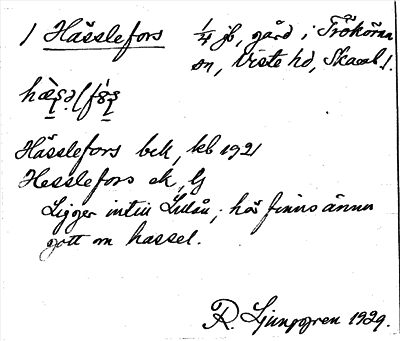 1 Hässlefors 1/4 jb, gård i Trökörna
sn, Viste hd, Skarab. l.
Hässlefors bek, kb 1921
Hesslefors ek, lj
Ligger intill Lillån; här finns ännu
gott om hassel.
R. Ljunggren 1929.